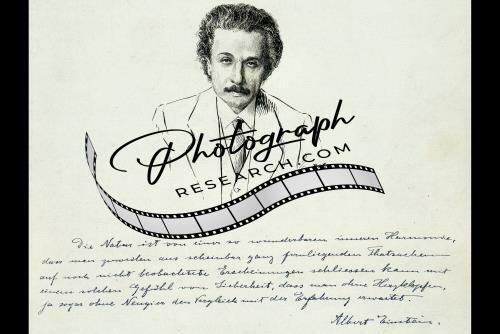 Photograph
RESEARCH.COM
Die Natur ist von einer so wunderbaren inneren Harmonie,
dass man zuweilen aus scheinbar ganz fernliegenden Thatsachen
auf noch nicht beobachtete Erscheinungen schliessen kann mit
einem solchen Gefühl von Sicherheit, dass man ohne Herzklopfen,
ja sogar ohne Neugier den Vergleich mit der Erfahrung erwartet.
Albert Einstein.